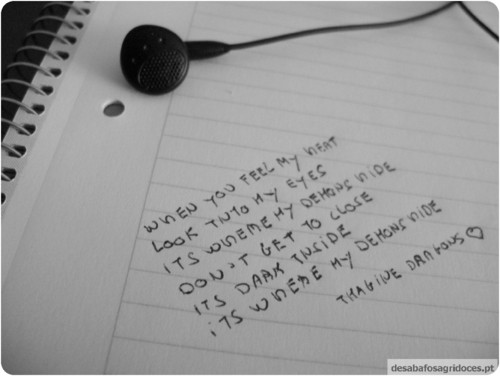 WHEN YOU FEEL MY HEAT
LOOK INTO MY EYES
ITS WHERE MY DEMONS HIDE
DON'T GET TO CLOSE
ITS DARK INSIDE
iTS WHERE MY DEMONS HIDE
IMAGINE DRAGONS♡
desabafosagridoces.pt